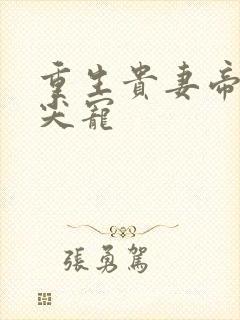 重生貴妻帝
尖寵
張勇駕